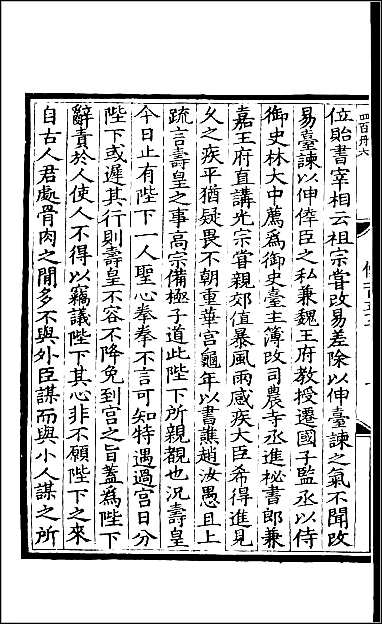 位貽書宰相云祖宗嘗改易差除以伸臺諫之氣不聞改
易臺諫以伸倖臣之私兼魏王府教授遷國子監丞以侍
御史林大中薦爲御史臺主簿改司農寺丞進秘書郎兼
嘉王府直講光宗嘗親郊值暴風雨感疾大臣希得進見
久之疾平猶疑畏不朝重華宮龜年以書譙趙汝愚且上
疏言壽皇之事高宗備極子道此陛下所親覩也況壽皇
今日止有陛下一人聖心拳拳不言可知特遇過宮日分
陛下或遲其行則壽皇不容不降免到宮之旨蓋爲陛下
辭責於人使人不得以竊議陛下其心非不願陛下之來
自古人君處骨肉之閒多不與外臣謀而與小人謀之所